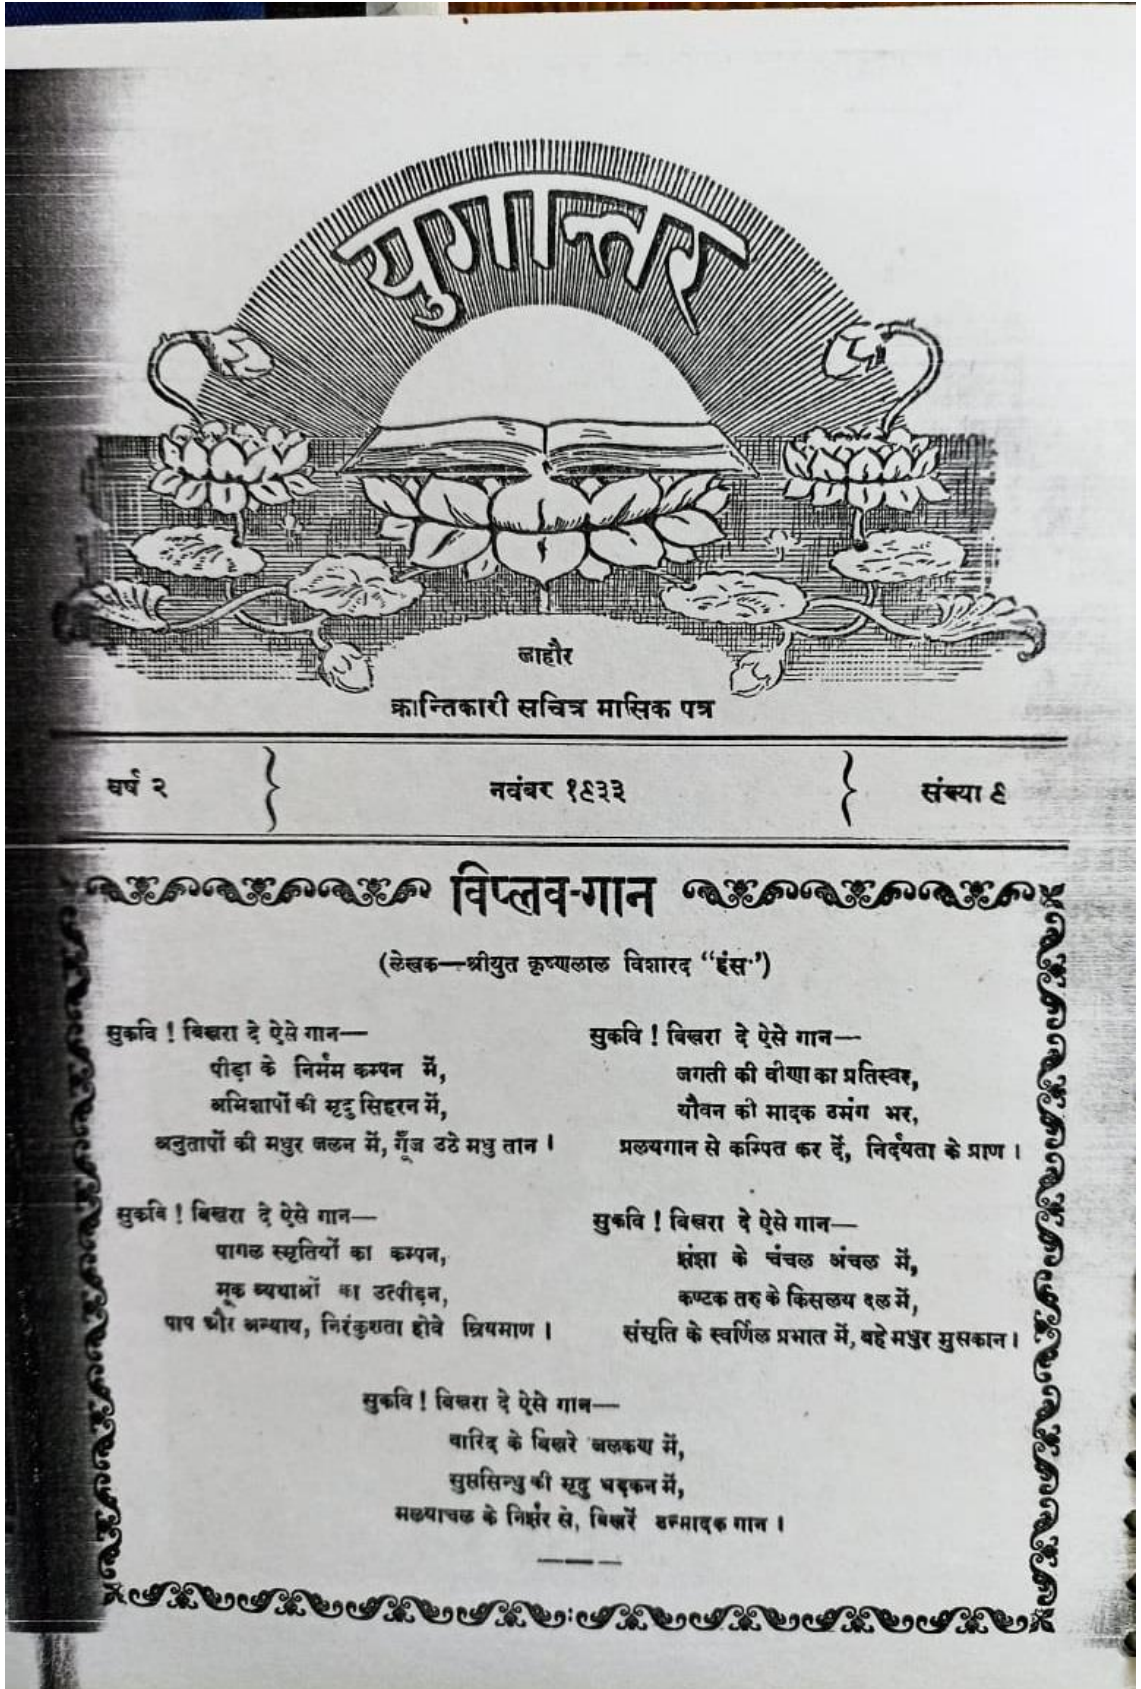 युगान्तर
लाहौर
क्रान्तिकारी सचित्र मासिक पत्र
वर्ष २
नवंबर १९३३
संख्या ९
विप्लव-गान
(लेखक—श्रीयुत कृष्णलाल विशारद “हंस”)
सुकवि ! बिखरा दे ऐसे गान—
पीड़ा के निर्मम कम्पन में,
अभिशापों की मृदु सिहरन में,
अनुतापों की मधुर जलन में, गूँज उठे मधु तान ।
सुकवि ! बिखरा दे ऐसे गान—
पागल स्मृतियों का कम्पन,
मूक व्यथाओं का उत्पीड़न,
पाप और अन्याय, निरंकुशता होवे म्रियमाण ।
सुकवि ! बिखरा दे ऐसे गान—
जगती की वीणा का प्रतिस्वर,
यौवन की मादक उमंग भर,
प्रलयगान से कम्पित कर दें, निर्दयता के प्राण ।
सुकवि ! बिखरा दे ऐसे गान—
झंझा के चंचल अंचल में,
कण्टक तरु के किसलय दल में,
संसृति के स्वर्णिल प्रभात में, बहे मधुर मुसकान ।
सुकवि ! बिखरा दे ऐसे गान—
वारिद के बिखरे जलकण में,
सुप्तसिन्धु की मृदु धड़कन में,
मलयाचल के निर्झर से, बिखरें उन्मादक गान ।